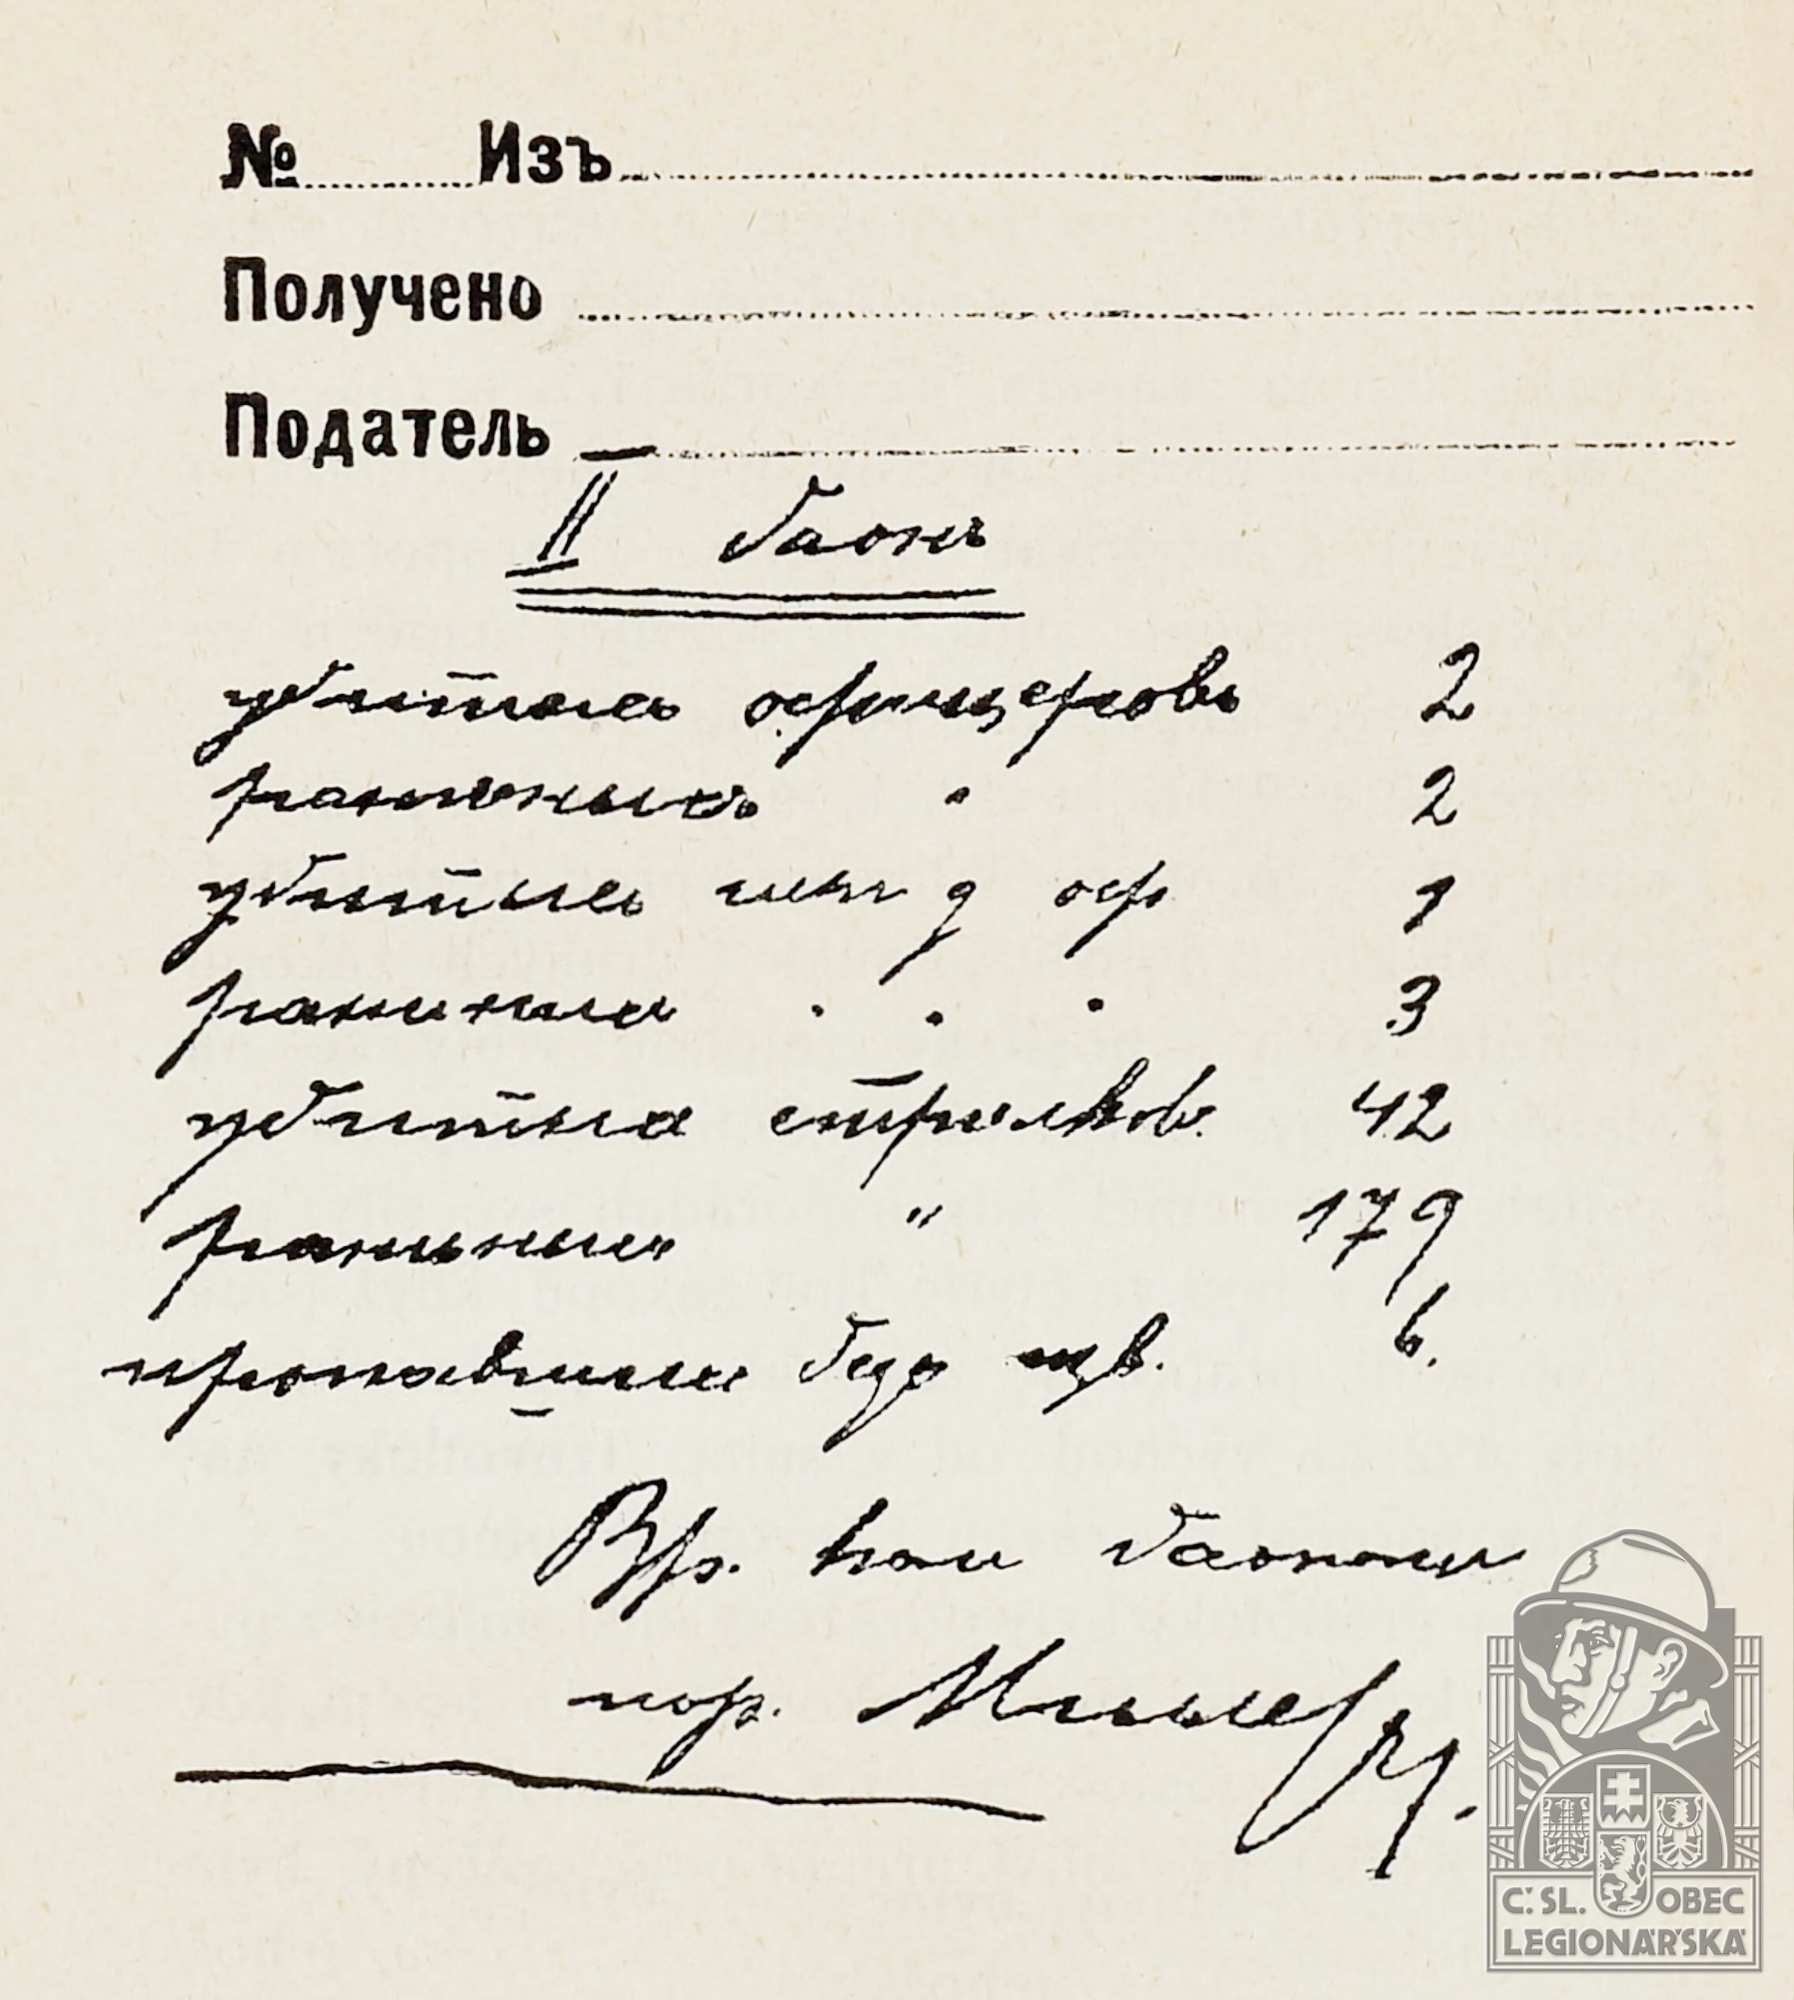 № Изъ
Получено
Податель
II баонъ
убитыхъ офицеровъ 2
раненыхъ " 2
убитыхъ исп д оф 1
раненыхъ " " " 3
убитыхъ стрелков. 42
раненыхъ " 179
пропавшихъ безъ 6.
Вр. ком баоном
пор.
Č. SL. OBEC
LEGIONÁŘSKÁ